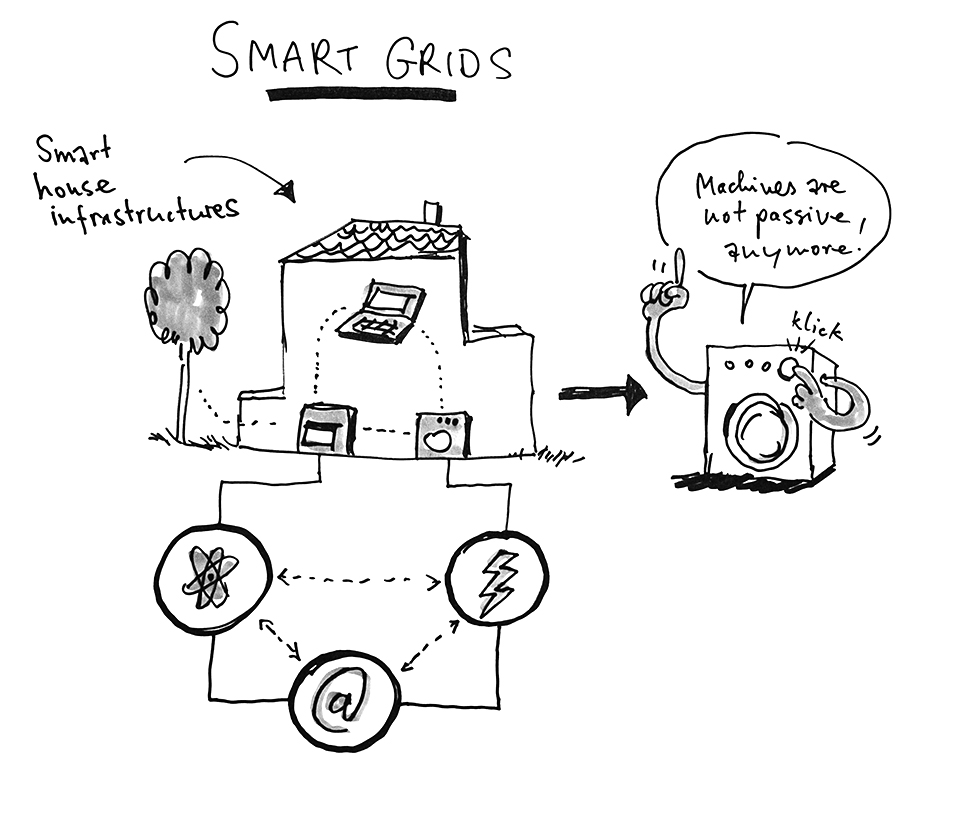 SMART GRIDS
Smart
house
infrastructures
Machines are
not passive,
anymore.
klick
@